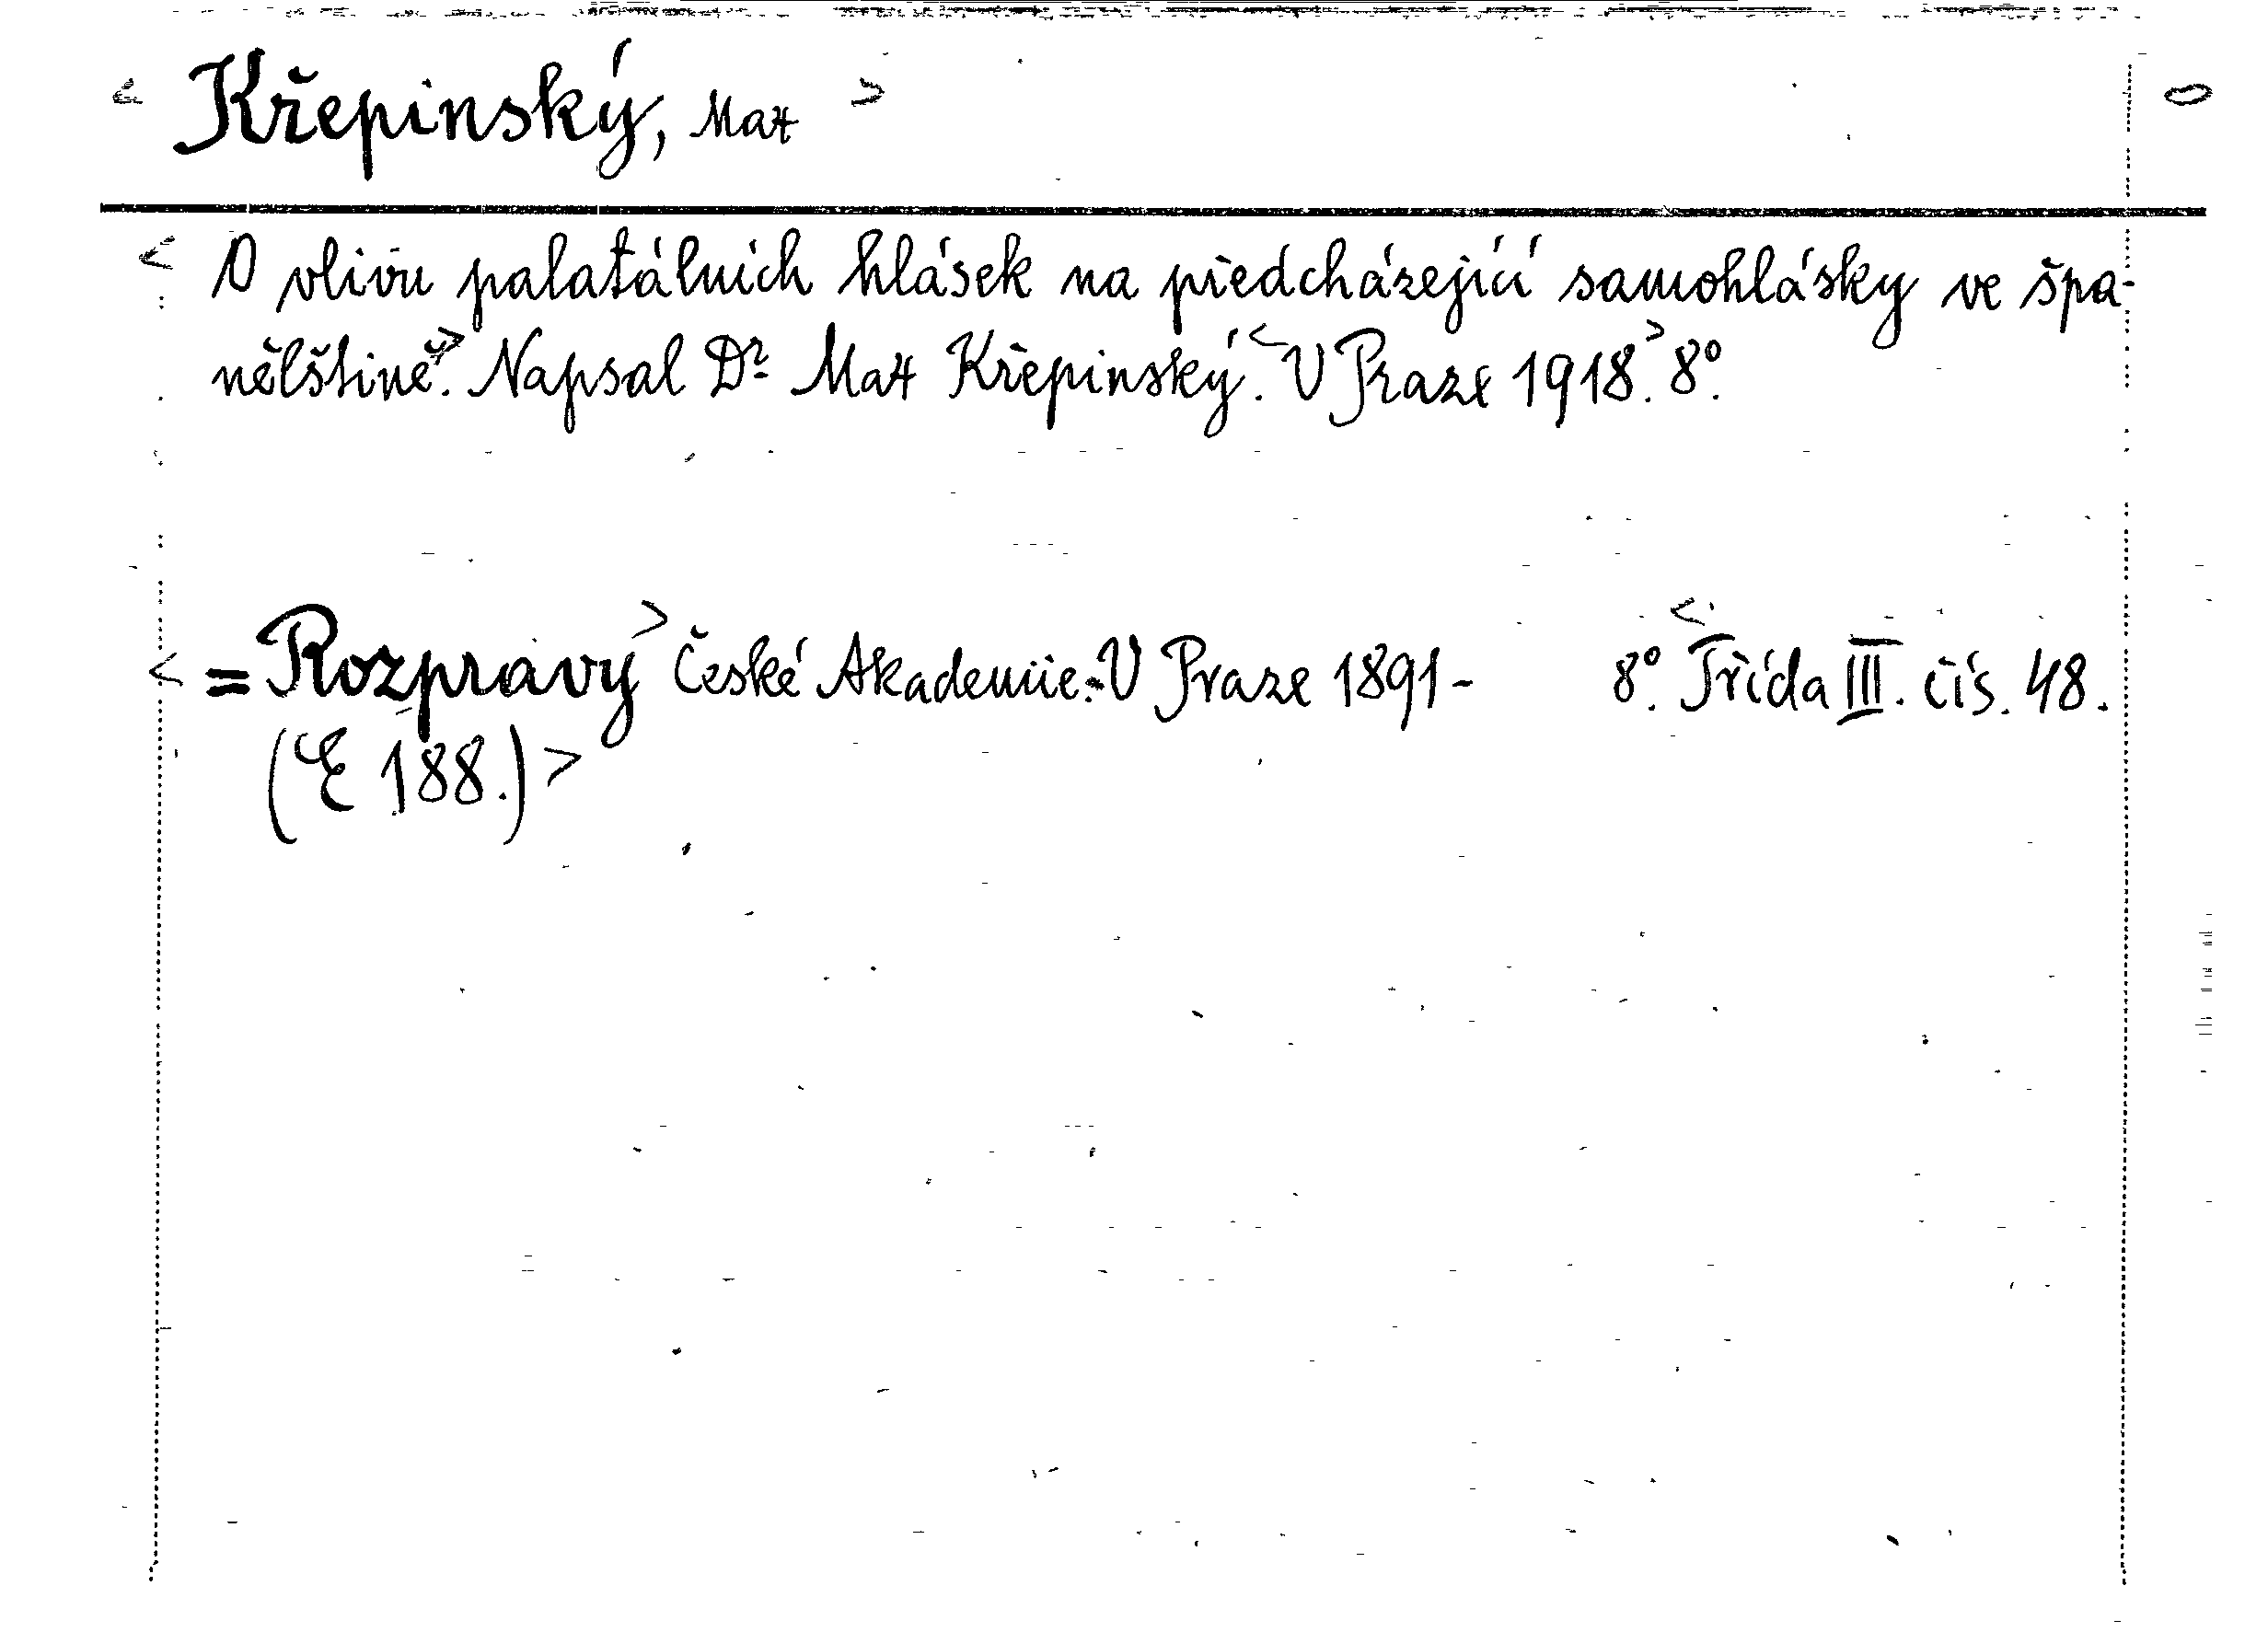 < Křepinský, Max > 0
< O vlivu palatálních hlásek na předcházející samohlásky ve špa-
nělštině.> Napsal Dr. Max Křepinský. < V Praze 1918.> 8°.
< = Rozpravy > České Akademie. - V Praze 1891 - 8°. < Třída III. čís. 48.
(E 188.) >